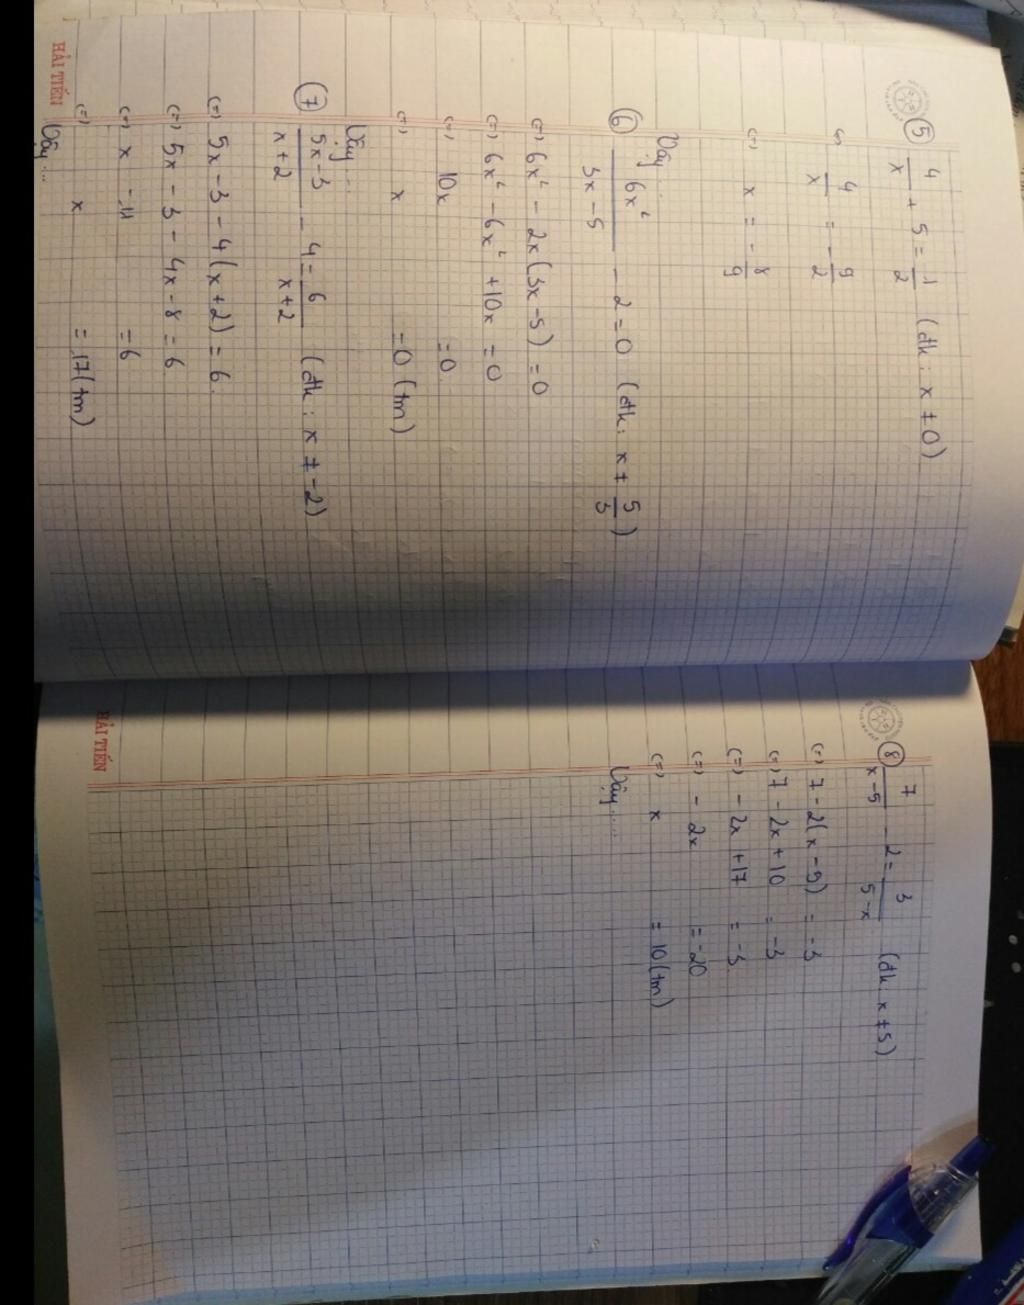 ⑤ 4/x + 5 = 1/2 (đk: x ≠ 0)
(=) 4/x = -9/2
(=) x = -8/9
Vậy
⑥ 6x²/3x-5 - 2 = 0 (đk: x ≠ 5/3)
(=) 6x² - 2x(3x-5) = 0
(=) 6x² - 6x² + 10x = 0
(=) 10x = 0
(=) x = 0 (tm)
Vậy...
⑦ 5x-3/x+2 - 4 = 6/x+2 (đk: x ≠ -2)
(=) 5x - 3 - 4(x+2) = 6
(=) 5x - 3 - 4x - 8 = 6
(=) x - 11 = 6
(=) x = 17 (tm)
Vậy...
HẢI TIẾN
⑧ 7/x-5 - 2 = 3/5-x (đk: x ≠ 5)
(=) 7 - 2(x-5) = -3
(=) 7 - 2x + 10 = -3
(=) - 2x + 17 = -3
(=) - 2x = -20
(=) x = 10 (tm)
Vậy.....
HẢI TIẾN